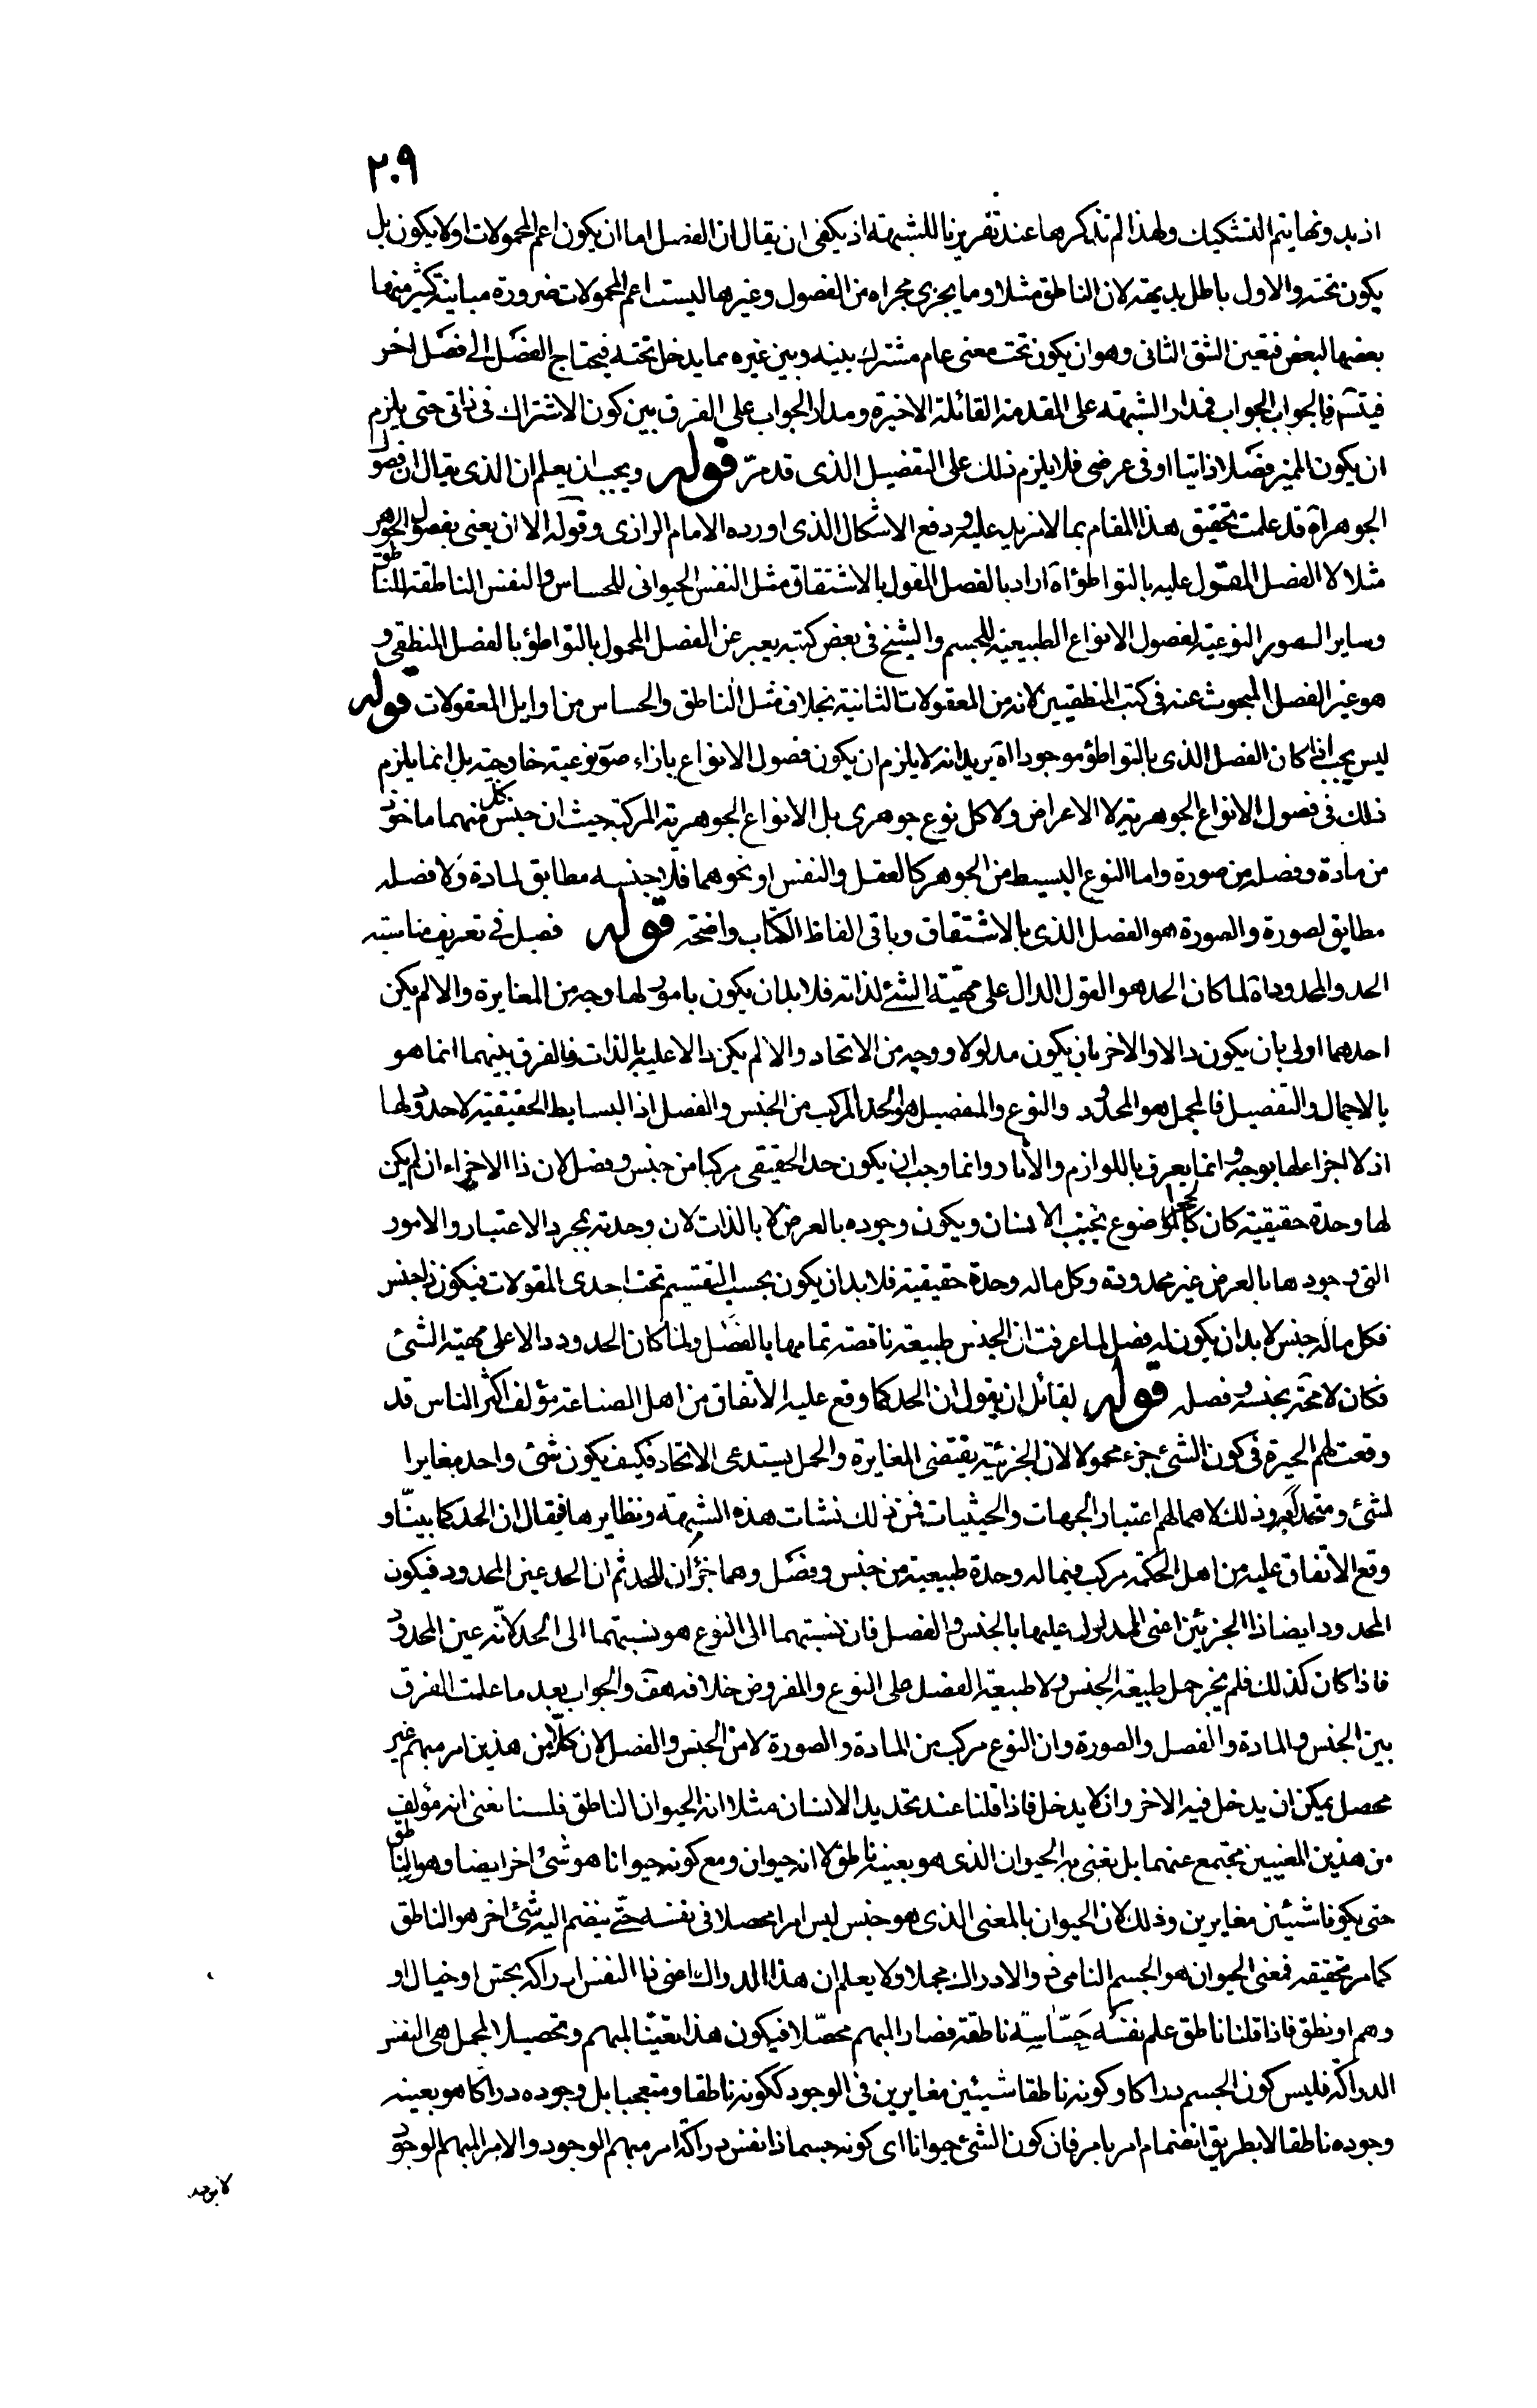 ٢٠٩
اذ بدونها يتم التشكيك ولهذا لم نذكرها عند تقريرنا للشبهة اذ يكفى ان يقال ان الفصل اما ان يكون اعم المحمولات اولا يكون بل
يكون تحته والاول باطل بديهة لان الناطق مثلا وما يجرى مجراه من الفصول وغيرها ليست اعم المحمولات ضرورة مباينة كثير منها
بعضها لبعض فتعين الشق الثانى وهو ان يكون تحت معنى عام مشترك بينه وبين غيره مما يدخل تحته فيحتاج الفصل الى فصل اخر
فيتسلسل فالجواب الجواب فمدار الشبهة على المقدمة القائلة الاخيرة ومدار الجواب على الفرق بين كون الاشتراك فى ذاتى حتى يلزم
ان يكون المميز فصلا ذاتيا او فى عرضى فلا يلزم ذلك على التفصيل الذى قد مرّ قوله ويجب ان يعلم ان الذى يقال ان فصول
الجوهر اه قد علمت تحقيق هذا المقام بما لا مزيد عليه ودفع الاشكال الذى اورده الامام الرازى وقوله الا ان يعنى بفصول الجوهر
مثلا لا الفصل المقول عليه بالتواطؤ اه اراد بالفصل المقول بالاشتقاق مثل النفس الحيوانى للحساس والنفس الناطقة للناطق
وساير الصور النوعية لفصول الانواع الطبيعية للجسم والشيخ فى بعض كتبه يعبر عن الفصل المحمول بالتواطؤ بالفصل المنطقى و
هو غير الفصل المبحوث عنه فى كتب المنطقيين لانه من المعقولات الثانية بخلاف مثل الناطق والحساس من اوايل المعقولات قوله
ليس يجب اذا كان الفصل الذى بالتواطؤ موجودا اه يريد انه لا يلزم ان يكون فصول الانواع بازاء صور نوعية خارجية بل انما يلزم
ذلك فى فصول الانواع الجوهرية لا الاعراض ولا كل نوع جوهرى بل الانواع الجوهرية المركبة حيث ان جنس كل منهما ماخوذ
من مادة وفصله من صورة واما النوع البسيط من الجوهر كالعقل والنفس او نحوهما فلا جنسه مطابق لمادة ولا فصله
مطابق لصورة والصورة هو الفصل الذى بالاشتقاق وباقى الفاظ الكتاب واضحة قوله فصل فى تعريف مناسبة
الحد والمحدود اه لما كان الحد هو القول الدال على مهيّة الشئ لذاته فلا بد ان يكون بامور لها وجه من المغايرة والا لم يكن
احدهما اولى بان يكون دالا والاخر بان يكون مدلولا ووجه من الاتحاد والا لم يكن دالا عليه بالذات فالفرق بينهما انما هو
بالاجمال والتفصيل فالمجمل هو المحدود والنوع والمفصيل هو الحد المركب من الجنس والفصل اذ البسايط الحقيقية لا حدود لها
اذ لا اجزاء لها بوجه وانما يعرف باللوازم والاثار وانما وجب ان يكون حد الحقيقى مركبا من جنس وفصل لان ذا الاجزاء ان لم يكن
لها وحدة حقيقية كان كالحجر الموضوع بجنب الانسان ويكون وجوده بالعرض لا بالذات لان وحدته بمجرد الاعتبار والامور
التى وجودها بالعرض غير محدودة وكل ماله وحدة حقيقية فلا بد ان يكون بحسب التقسيم تحت احدى المقولات فيكون ذا جنس
فكل ماله جنس لا بد ان يكون له فصل لما عرفت ان الجنس طبيعة ناقصة تمامها بالفصل ولما كان الحدود دالا على مهية الشئ
فكان لا محة بجنسه وفصله قوله لقائل ان يقول ان الحد كما وقع عليه الاتفاق من اهل الصناعة مؤلف اكثر الناس قد
وقعت لهم الحيرة فى كون الشئ جزء محمولا لان الجزئية يقتضى المغايرة والحمل يستدعى الاتحاد فكيف يكون شئ واحد مغايرا
لشئ ومتحدا به وذلك لاهمالهم اعتبار الجهات والحيثيات فمن ذلك نشات هذه الشبهة ونظايرها فيقال ان الحد كما بينّا و
وقع الاتفاق عليه من اهل الحكمة مركب فيما له وحدة طبيعية من جنس وفصل وهما جزءان للحد ثم ان الحد عين المحدود فيكون
المحدود ايضا ذا الجزئين اعنى المدلول عليها بالجنس والفصل فان نسبتهما الى النوع هو نسبتهما الى الحد لانّه عين المحدود
فاذا كان كذلك فلم يجز حمل طبيعة الجنس ولا طبيعة الفصل على النوع والمفروض خلافه هف والجواب بعد ما علمت الفرق
بين الجنس والمادة والفصل والصورة وان النوع مركب من المادة والصورة لا من الجنس والفصل لان كلّا من هذين امر مبهم غير
محصل يمكن ان يدخل فيه الاخر وان لا يدخل فاذا قلنا عند تحديد الانسان مثلا انه الحيوان الناطق فلسنا نعنى انه مؤلف
من هذين المعنيين مجتمع عنهما بل نعنى به الحيوان الذى هو بعينه ناطق لا انه حيوان ومع كونه حيوانا هو شئ اخر ايضا وهو الناطق
حتى يكونا شيئين مغايرين وذلك لان الحيوان بالمعنى الذى هو جنس ليس امرا محصلا فى نفسه حتّى ينضم اليه شئ اخر هو الناطق
كما مر تحقيقه فمعنى الحيوان هو الجسم النامى ذو الادراك مجملا ولا يعلم ان هذا الدراك اعنى ذا النفس ادراكه بحس او خيال او
وهم او نطق فاذا قلنا ناطق علم نفسه حسّاسة ناطقة فصار المبهم محصّلا فيكون هذا تعيّنا للمبهم وتحصيلا لمجمل هى النفس
الدراكة فليس كون الجسم دراكا وكونه ناطقا شيئين مغايرين فى الوجود ككونه ناطقا ومتعجبا بل وجوده دراكا هو بعينه
وجوده ناطقا لا بطريق انضمام امر بامر فان كون الشئ حيوانا اى كونه جسما ذا نفس دراكة امر مبهم الوجود والامر المبهم الوجود
لا يوجد